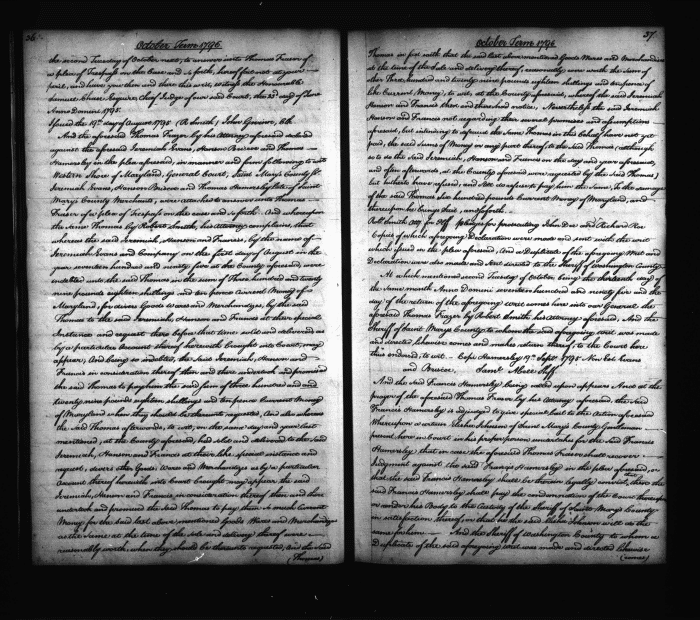 36
October Term 1796
the second Tuesday of October next, to answer unto Thomas Frazer of
a plea of Trespass on the Case and so forth, hereof fail not at your
peril, and have you then and there this writ, witness the Honorable
Samuel Chase Esquire, Chief Judge of our said Court, the 23d day of June
Anno Domini 1795.
Issued the 19th day of August 1795 (R. Smith) John Gwinn, Clk
And the aforesaid Thomas Frazer by his Attorney aforesaid
against the aforesaid Jeremiah Evans, Hanson Briscoe and Thomas
Hamersley in the plea aforesaid, in manner and form following to wit
Western Shore of Maryland, General Court, Saint Mary's County ss
Jeremiah Evans, Hanson Briscoe and Thomas Hamersley late of Saint
Mary's County Merchants, were attached to answer unto Thomas
Frazer of a plea of Trespass on the case and so forth. And whereupon
the same Thomas by Robert Smith, his attorney complains, that
whereas the said Jeremiah, Hanson and Francis, by the name of
Jeremiah Evans and Company on the first day of August in the
year seventeen hundred and ninety five at the County aforesaid, were
indebted unto the said Thomas in the sum of Three hundred and twenty
nine pounds eighteen shillings and ten pence Current Money of
Maryland, for divers Goods Wares and Merchandizes, by the said
Thomas to the said Jeremiah, Hanson and Francis at their special
Instance and request there before that time sold and delivered as
by a particular Account thereof herewith brought into Court, may
appear, And being so indebted, the said Jeremiah, Hanson and
Francis in consideration thereof then and there undertook and promised
the said Thomas to pay him the said sum of three hundred and
twenty nine pounds eighteen shillings and ten pence Current Money
of Maryland when they should be thereunto requested, And also whereas
the said Thomas afterwards, to wit, on the same day and year last
mentioned, at the County aforesaid, had sold and delivered to the said
Jeremiah, Hanson and Francis at their like special instance and
request, divers other Goods Wares and Merchandizes as by a particular
Account thereof herewith into Court brought may appear the said
Jeremiah, Hanson and Francis in consideration thereof then and there
undertook and promised the said Thomas to pay them so much Current
Money for the said last above mentioned goods Wares and Merchandizes
as the same at the time of the sale and delivery thereof were
reasonably worth when they should be thereunto requested, And the said
(Thomas)
37
October Term 1796
Thomas in fact saith that the said last above mentioned Goods Wares and Merchandizes
at the time of the Sale and delivery thereof, reasonably were worth the Sum of
other Three hundred and twenty nine pounds eighteen shillings and ten pence of
like Current Money, to wit, at the County aforesaid, whereof the said Jeremiah
Hanson and Francis then and there had notice, Nevertheless the said Jeremiah
Hanson and Francis not regarding their several promises and assumptions
aforesaid, but intending to defraud the same Thomas in this behalf have not yet
paid, the said Sums of Money or any part thereof, to the said Thomas (although
so to do the said Jeremiah, Hanson and Francis on the day and year aforesaid,
and often afterwards, at the County aforesaid were requested by the said Thomas)
but hitherto have refused, and still do refuse to pay him the same, to the damage
of the said Thomas six hundred pounds Current Money of Maryland, and
thereupon he brings suit, and so forth.
Robt Smith Atty for Plff pledges for prosecuting John Doe and Richard Roe
Copies of which aforegoing Declaration were made and sent with the writ
which issued in the plea aforesaid, And a Duplicate of the aforegoing Writ and
Declaration were also made and sent directed to the Sheriff of Washington County
At which mentioned second Tuesday of October being the day of
the same month Anno Domini seventeen hundred and ninety five and the
day of the return of the aforegoing writ comes here into our General the
aforesaid Thomas Frazer by Robert Smith his Attorney aforesaid, And the
Sheriff of Saint Mary's County to whom the said aforegoing writ was made
and directed likewise comes and makes return thereof to the Court here
thus endorsed, to wit. Cepi Hamersley 19th Sept 1795 Non Est Evans
and Briscoe. Saml Shff
And the said Francis Hamersley being called upon appears And at the
prayer of the aforesaid Thomas Frazer by his Attorney aforesaid, the said
Francis Hamersley is adjudged to give special bail to the Action aforesaid
Whereupon a certain Johnson of Saint Mary's County Gentleman
present here in Court in his proper person undertakes for the said Francis
Hamersley that in case the aforesaid Thomas Frazer shall recover
Judgment against the said Francis Hamersley in the plea aforesaid, or
that the said Francis Hamersley shall be therein legally convict, then the
said Francis Hamersley shall pay the condemnation of the Court thereupon
or render his Body to the Custody of the Sheriff of Saint Mary's County
in satisfaction thereof, or that he the said Johnson will do the
same for him. And the Sheriff of Washington County to whom a
Duplicate of the said aforegoing writ was made and directed likewise
(comes)